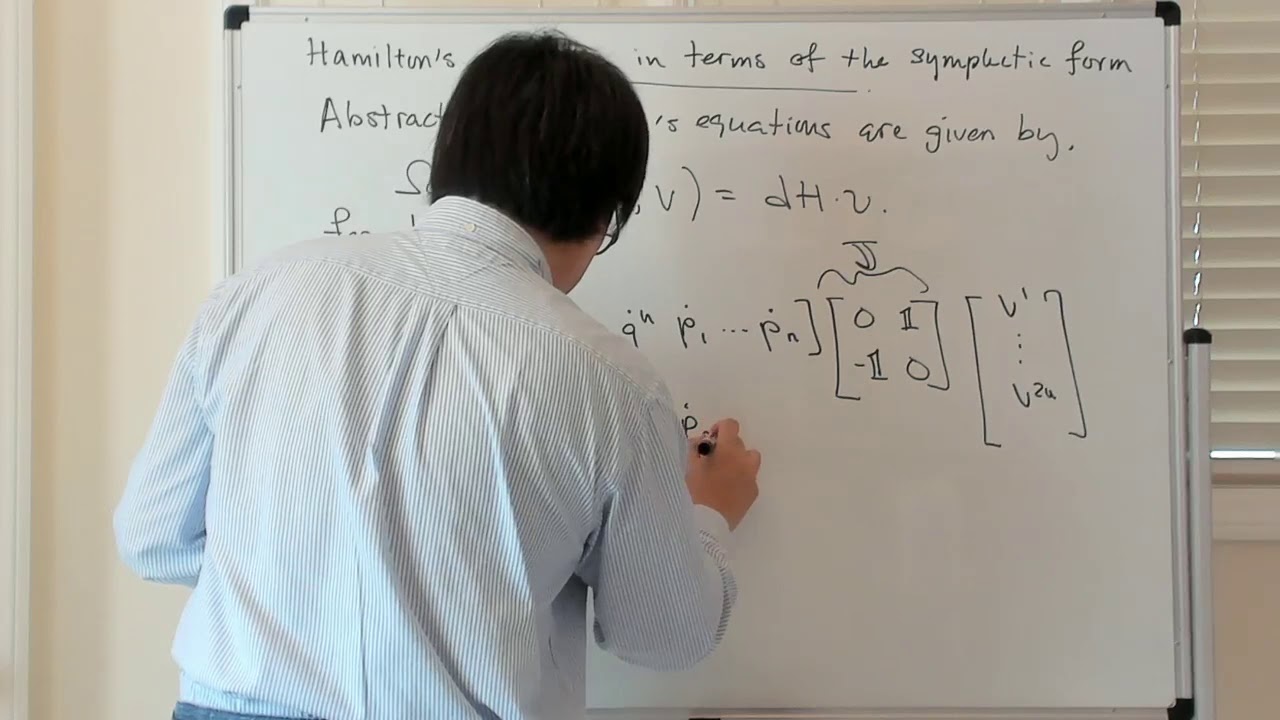 Hamilton's in terms of the symplectic form
Abstract 's equations are given by.
Ω , v) = dH·v.
for
J
q̇ⁿ ṗ₁ ... ṗₙ] [0 𝟙 -𝟙 0] [v¹ ⋮ v²ⁿ]
ṗ